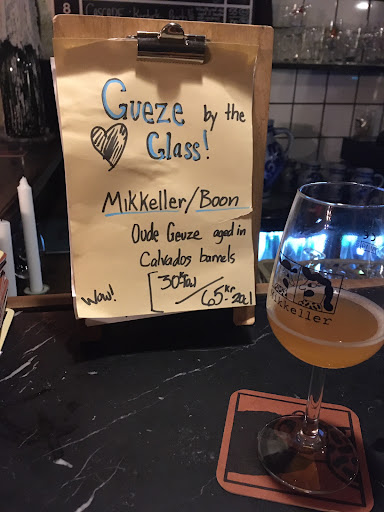 8
Gueze by the
Glass!
Mikkeller/Boon
Oude Geuze aged in
Calvados barrels
Wow!
Mikkeller